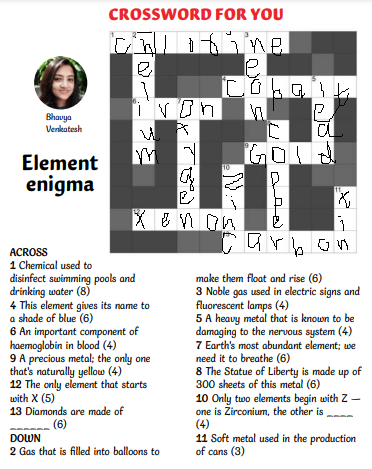 CROSSWORD FOR YOU
1 c 2 h l o r i 3 n e
e e
l 4 C o b a 5 l t
6 i r 7 o n n e
u x 8 c a
m y 9 G o l d
g 10 Z p
e i p 11
12 x e n o n e i
13 C a r b o n
Bhavya
Venkatesh
Element
enigma
ACROSS
1 Chemical used to
disinfect swimming pools and
drinking water (8)
4 This element gives its name to
a shade of blue (6)
6 An important component of
haemoglobin in blood (4)
9 A precious metal; the only one
that's naturally yellow (4)
12 The only element that starts
with X (5)
13 Diamonds are made of
______ (6)
DOWN
2 Gas that is filled into balloons to
make them float and rise (6)
3 Noble gas used in electric signs and
fluorescent lamps (4)
5 A heavy metal that is known to be
damaging to the nervous system (4)
7 Earth's most abundant element; we
need it to breathe (6)
8 The Statue of Liberty is made up of
300 sheets of this metal (6)
10 Only two elements begin with Z —
one is Zirconium, the other is ____
(4)
11 Soft metal used in the production
of cans (3)